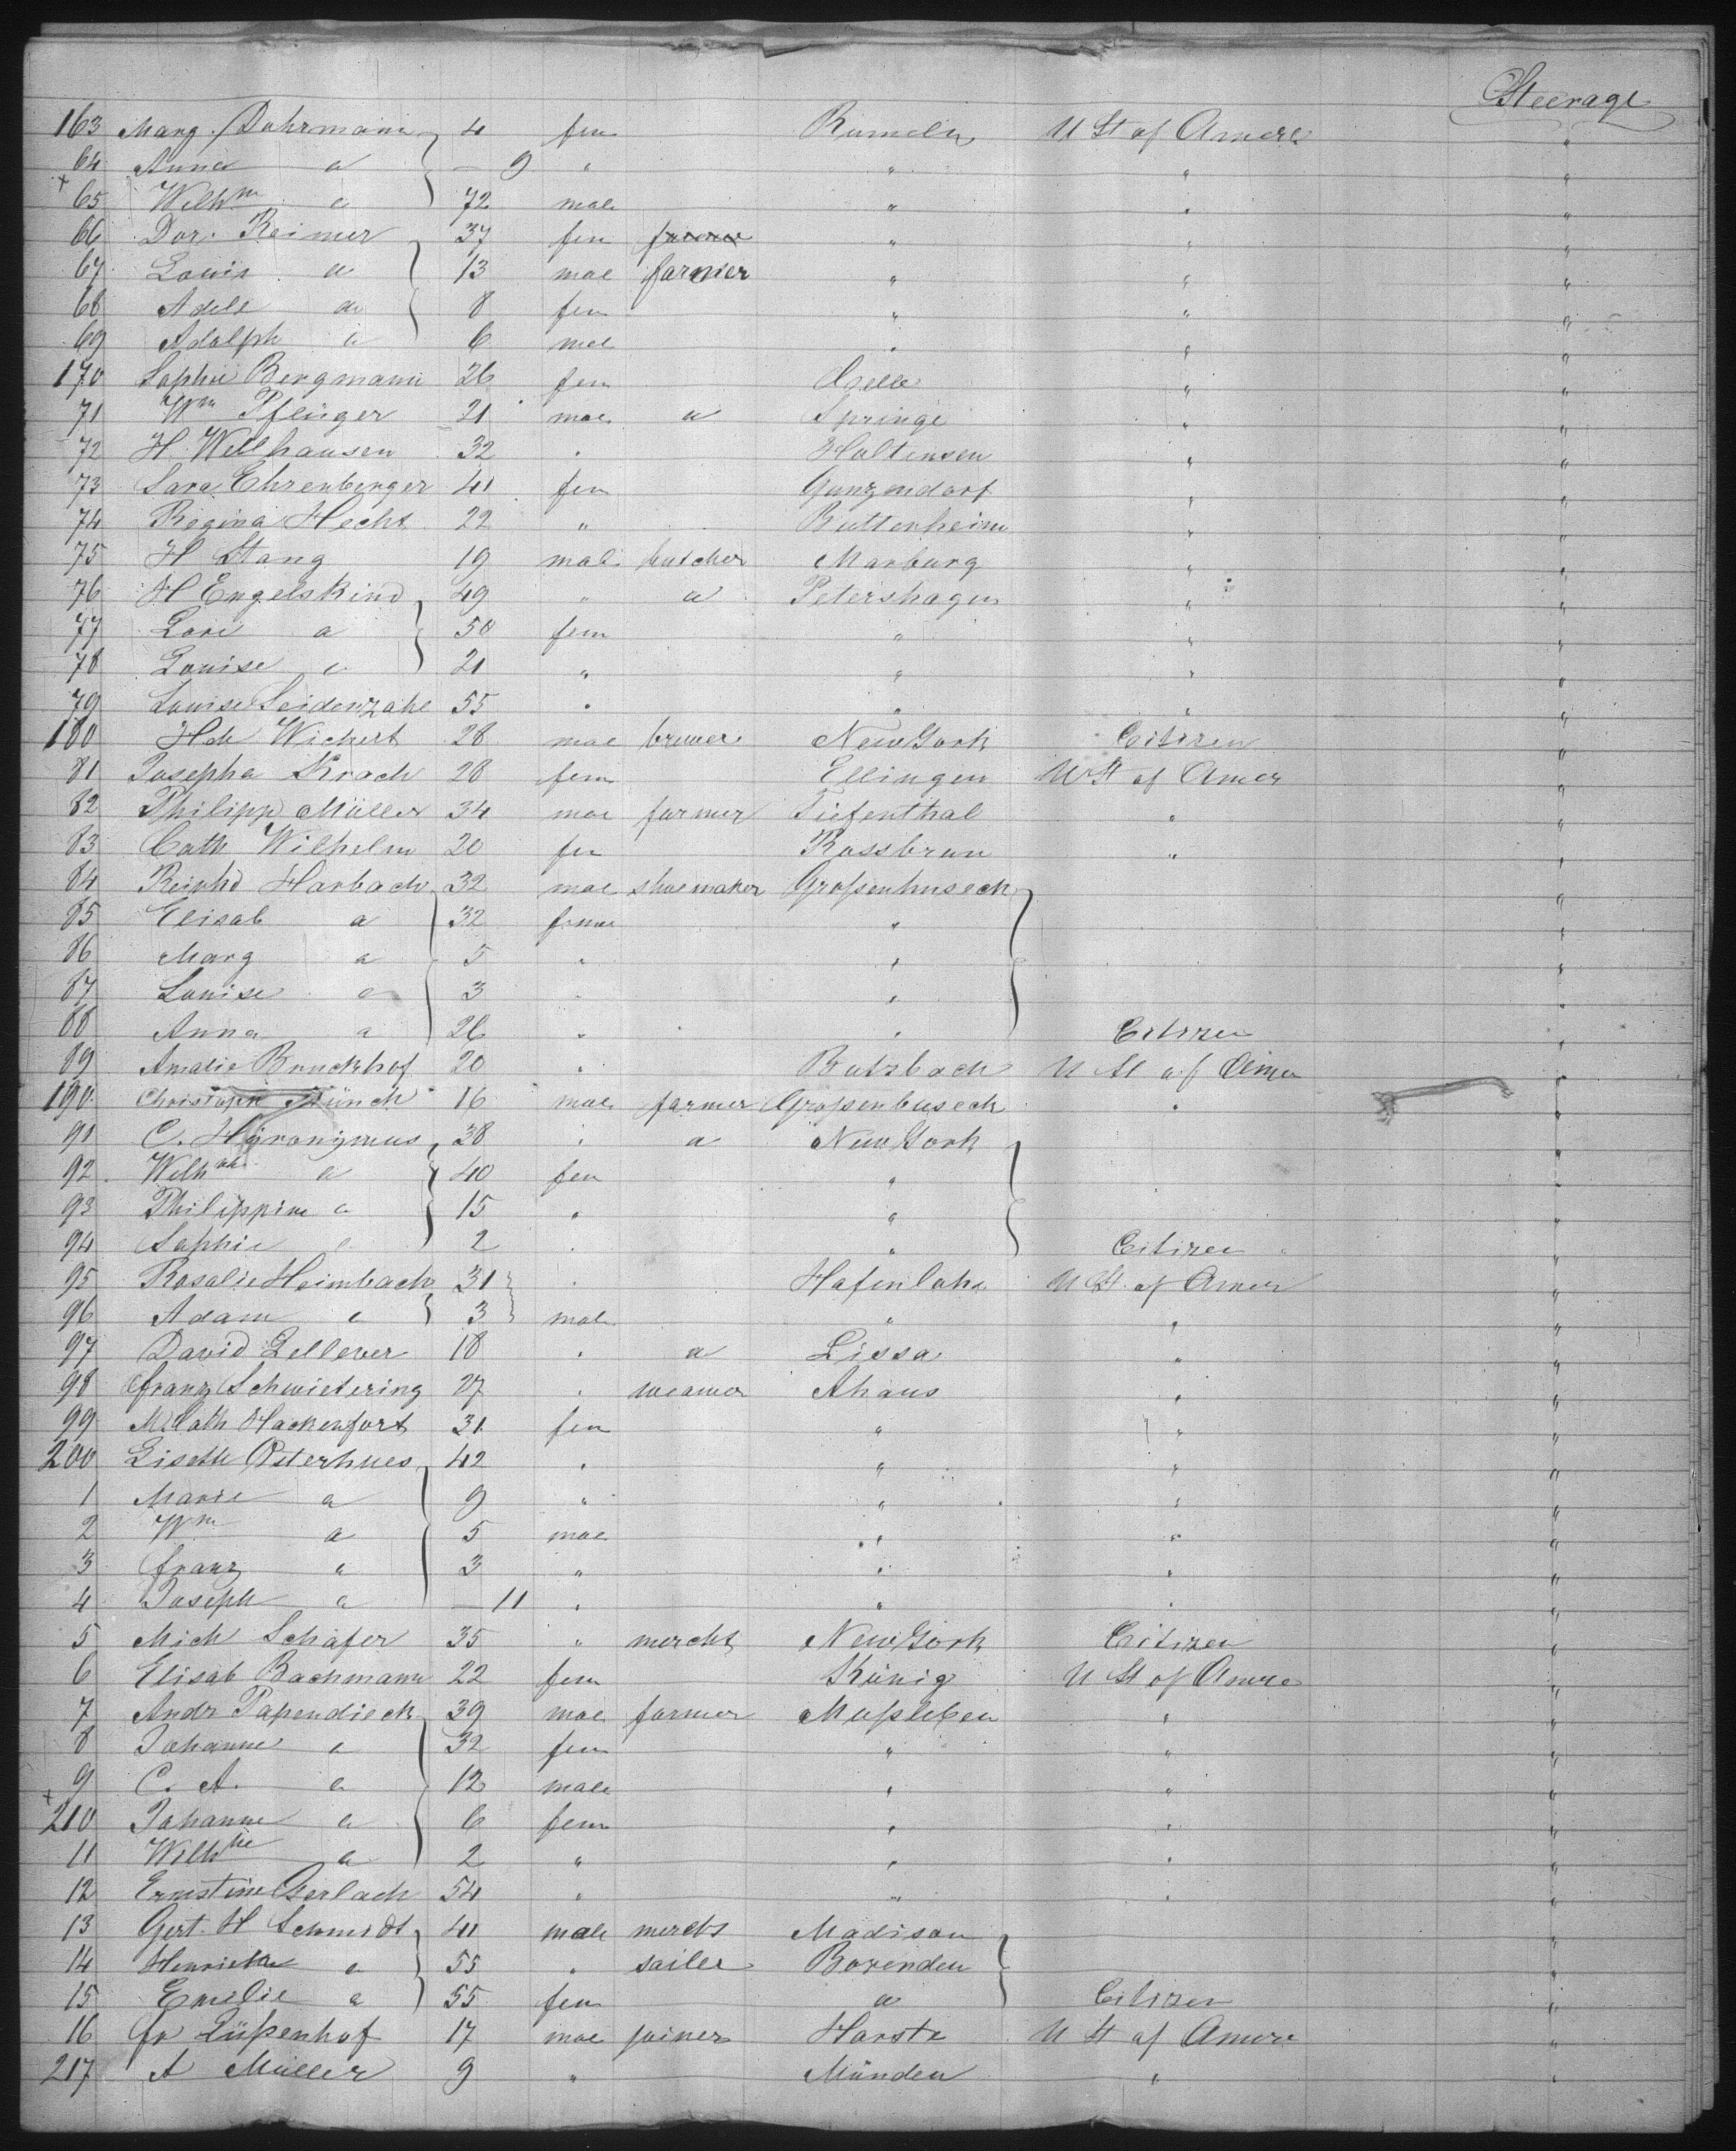 Steerage
163 Marg. Dohrmann 4 fem U St of Amere "
64 Anna a — 9 " " " "
65 Wilhm a 72 male " " "
66 Dor. Reimer 37 fem " " "
67 Louis a 13 mal farmer " " "
68 Adele a 8 fem " " "
69 Adolph a 6 mal " " "
170 Sophie Bergmann 26 fem " "
71 Wm Pflüger 21 mal a Springe " "
72 H. Wellhausen 32 " Holtensen " "
73 Sara Ehrenberger 41 fem Gunzendorf " "
74 Regina Hecht 22 " Buttenheim " "
75 H Stang 19 male butcher Marburg " "
76 H Engelskind 49 " a Petershagen " "
77 a 50 fem " " "
78 Louise a 21 " " " "
79 Louise Seidenzahl 55 " " " "
180 Hch Wichert 28 mal brewer New York Citizen "
81 Josepha Krach 28 fem Ellingen U St of Amer "
82 Philipp Müller 34 mal farmer Tiefenthal " "
83 Cath Wilhelm 20 fem Rossbrun " "
84 Reinhd Harbach 32 mal shoemaker Großenbuseck "
85 Elisab a 32 female " "
86 Marg a 5 " " "
87 Louise a 3 " " "
88 Anna a 26 " " Citizen "
89 Amalie Bruckhof 20 " Butzbach U St of Amer "
190 Christoph Münch 16 male farmer Großenbuseck " "
91 C. Hyronymus 38 " a New York "
92 a 40 fem " "
93 Philippine a 15 " " "
94 Sophie a 2 " " Citizen "
95 Rosalie Heimbach 31 " Hafenlohr U St. of Amer "
96 Adam a 3 male " " "
97 David Lellever 18 " a Lissa " "
98 Franz Schwietering 27 " weawer Ahaus " "
99 M. Cath Hackenfort 31 fem " " "
200 Lisette Osterhues 42 " " " "
1 Marie a 9 " " " "
2 Wm a 5 mal " " "
3 Franz a 3 " " " "
4 Joseph a — 11 " " " "
5 Mich Schäfer 35 " mercht New York Citizen "
6 Elisab Bachmann 22 fem König U St of Amere "
7 Andr Papendieck 39 mal farmer Maßleben " "
8 Johanne a 32 fem " " "
9 C. A. a 12 male " " "
210 Johanne a 6 fem " " "
11 Wilhne a 2 " " " "
12 Ernstine Gerlach 54 " " " "
13 Gert. H Schmidt 41 male mercht Madison "
14 Henriette a 55 " sailer "
15 Emilie a 55 fem a Citizen "
16 Fr Lüßenhof 17 mal joiner Harste U St of Amere "
217 A Müller 9 " Münden " "